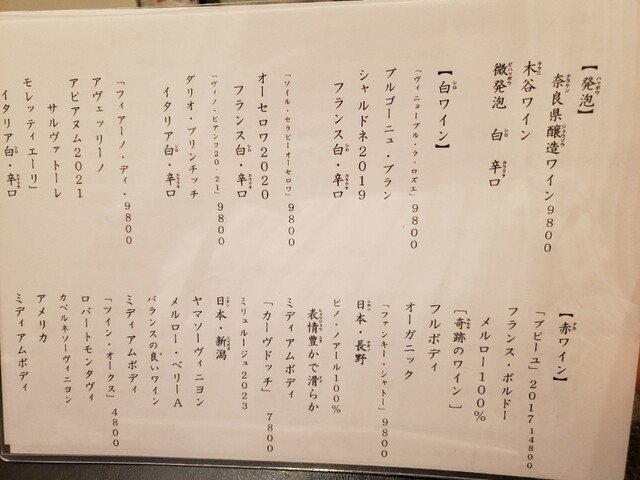 【発泡】
奈良県醸造ワイン9800
木谷ワイン
微発泡 白 辛口
【白ワイン】
「ヴィニョーブル・ラ・ロズエ」9800
ブルゴーニュ・ブラン
シャルドネ2019
フランス白・辛口
「ソイル・セラピーオーセロワ」9800
オーセロワ2020
フランス白・辛口
「ヴィノ・ビアンコ20・21」9800
ダリオ・プリンチッチ
イタリア白・辛口
「フィアーノ・ディ・9800
アヴェッリーノ
アピアヌム2021
サルヴァトーレ
モレッティエーリ」
イタリア白・辛口
【赤ワイン】
「プピーュ」201714800
フランス・ボルドー
メルロー100%
[奇跡のワイン]
フルボディ
オーガニック
「ファンキー・シャトー」9800
日本・長野
ピノ・ノアール100%
表情豊かで滑らか
ミディアムボディ
「カーヴドッチ」7800
ミリュルージュ2023
日本・新潟
ヤマソーヴィニヨン
メルロー・ベリーA
バランスの良いワイン
ミディアムボディ
「ツイン・オークス」4800
ロバートモンタヴィ
カベルネソーヴィニヨン
アメリカ
ミディアムボディ